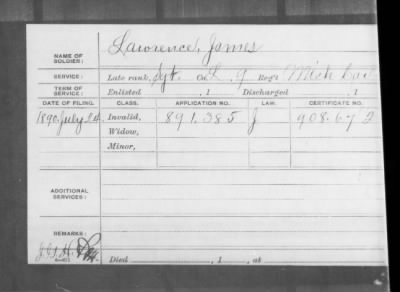 NAME OF SOLDIER: Lawrence, James
SERVICE: Late rank, Sgt. Co. L, 9 Reg't Mich Cav
TERM OF SERVICE: Enlisted , 1 Discharged , 1
DATE OF FILING. CLASS. APPLICATION NO. LAW. CERTIFICATE NO.
1890 July 24 Invalid, 891.385 J 908.672
Widow,
Minor,
ADDITIONAL SERVICES:
REMARKS:
Died , 1 , at